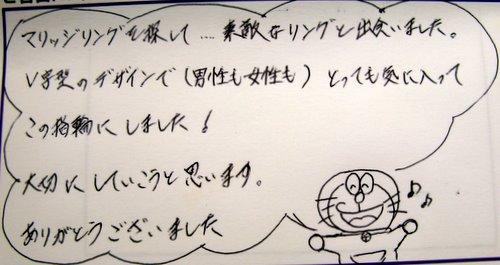 マリッジリングを探して…素敵なリングと出会いました。
V字型のデザインで(男性も女性も)とっても気に入って
この指輪にしました!
大切にしていこうと思います。
ありがとうございました